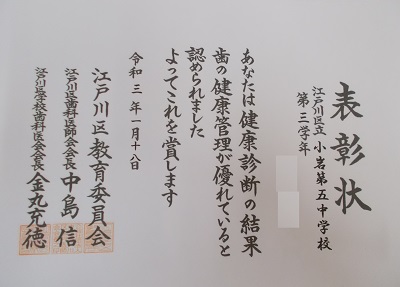 表彰状
江戸川区立 小岩第五中学校
第三学年
あなたは健康診断の結果
歯の健康管理が優れていると
認められました
よってこれを賞します
令和三年一月十八日
江戸川区教育委員会
江戸川区歯科医師会会長 中島信
江戸川区学校歯科医会会長 金丸充徳